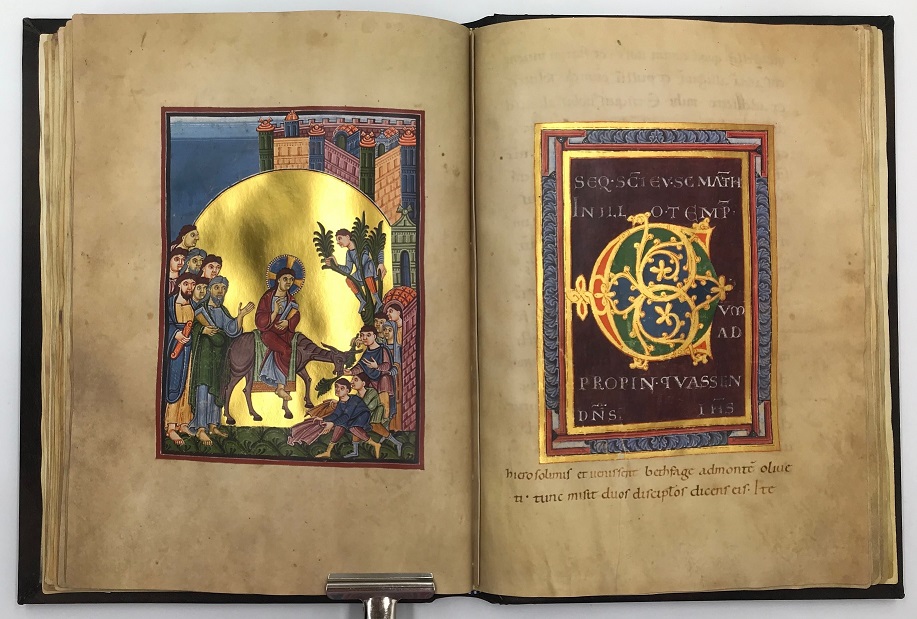 SEQ·SC̄I EV·SC MATH̄
IN ILLO·TEMP̄·
C
VM
AD
PROPIN·QVASSEN
DN̄S· IH̄S
hierosolimis et uenissent bethfage admontē oliue
ti· tunc misit duos discip̄los dicens eis· Ite